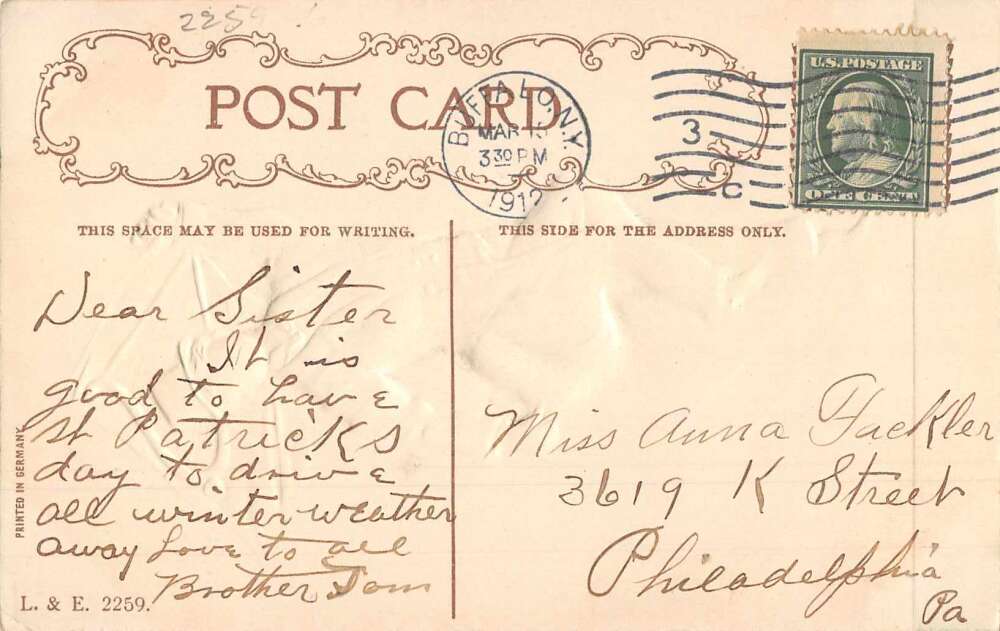 2259
POST CARD
BUFFALO, N.Y.
MAR
3 30 PM
1912
3
C
U.S. POSTAGE
ONE CENT
THIS SPACE MAY BE USED FOR WRITING.
THIS SIDE FOR THE ADDRESS ONLY.
Dear Sister
It is
good to have
St Patricks
day to drive
all winter weather
away Love to all
Brother Tom
Miss Anna Fackler
3619 K Street
Philadelphia
Pa
PRINTED IN GERMANY
L. & E. 2259.